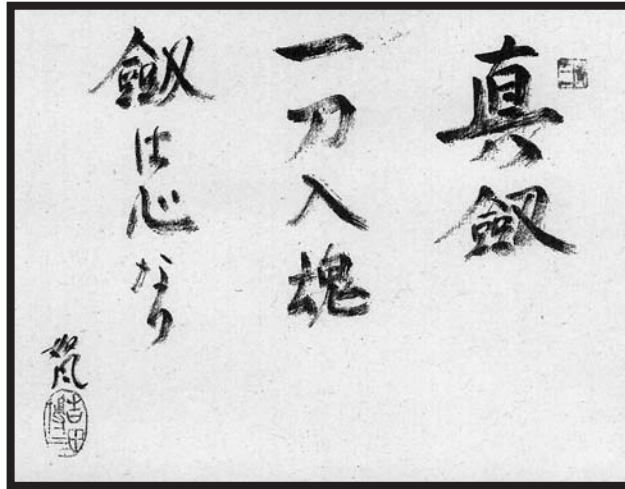 真劔
一刀入魂
劔は心なり
如風